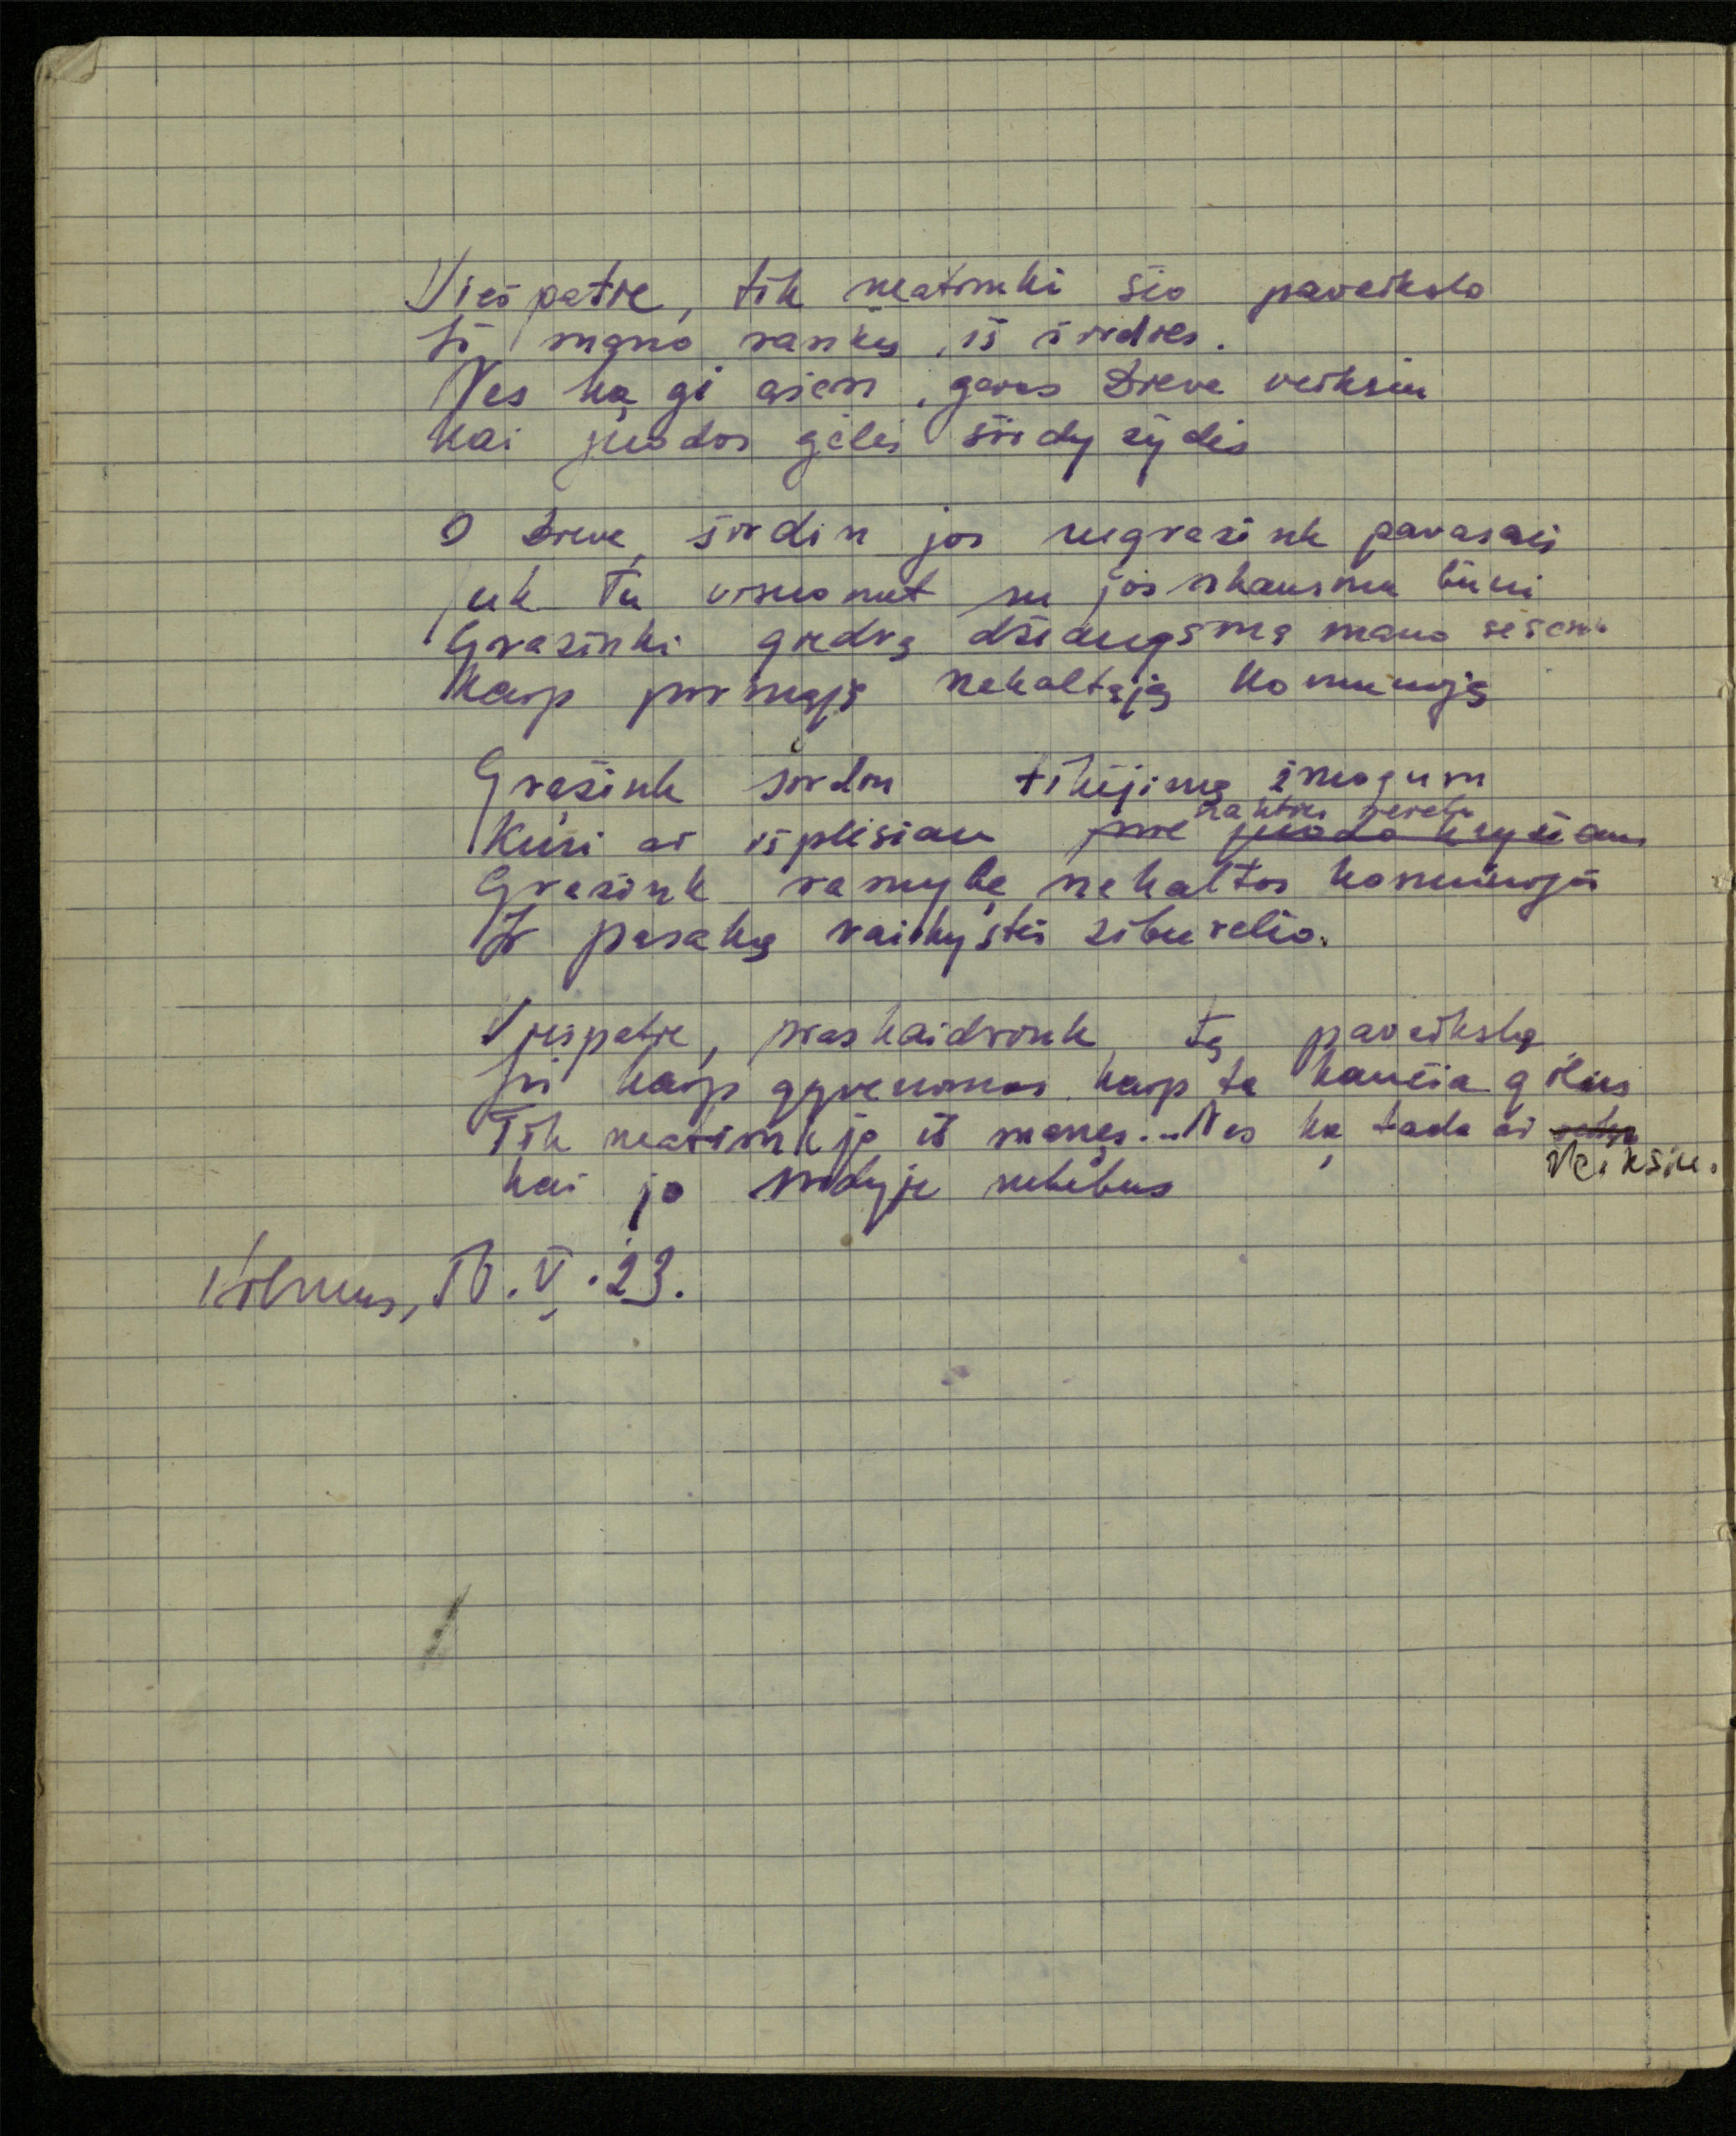 Viešpatie, tik neatimki šio paveikslo
Iš mano rankų, iš širdies.
Nes ką gi ašen, geras Dieve veiksiu
kai juodos gėlės širdy žydės

O Dieve, širdin jos negrąžink pavasario
juk Tu visuomet su jos skausmu būni
Grąžinki giedrą džiaugsmą mano sesem
Kaip pirmąją nekaltąją komuniją

Grąžink širdin tikėjimą žmogum
Kurį aš išplėšiau prie nakties juodo kryžiaus
Grąžink ramybę nekaltos komunijos
Ir pasaką vaikystės žiburėlio.

Viešpatie, praskaidrink tą paveikslą
Jis kaip gyvenimas kaip ta kančia gilus
Tik neatimk jo iš manęs... Nes ką tada aš
veiksiu.
kai jo širdyje nebebus

Vilnius, 70.V.23.